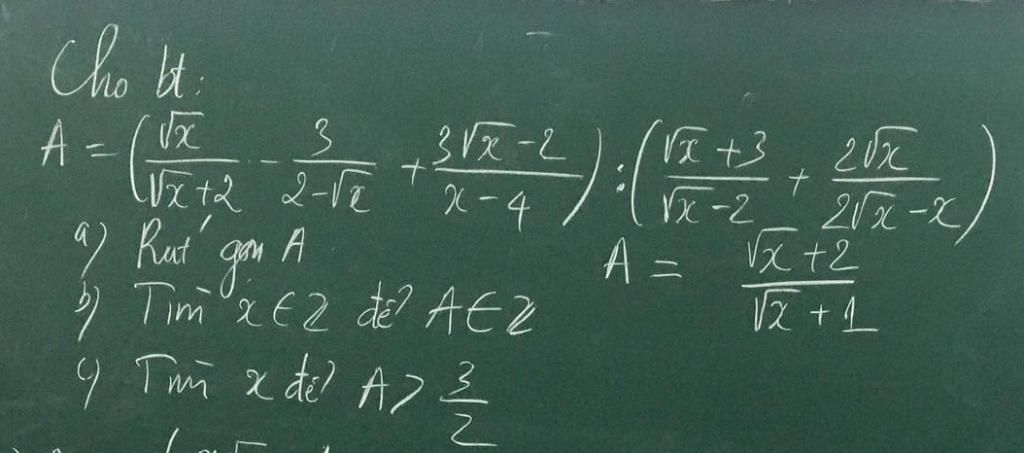 Cho bt:
A = (√x/(√x+2) - 3/(2-√x) + (3√x-2)/(x-4)) : ((√x+3)/(√x-2) + 2√x/(2√x-x))
a) Rút gọn A
A = (√x+2)/(√x+1)
b) Tìm x ∈ Z để A ∈ Z
c) Tìm x để A > 3/2